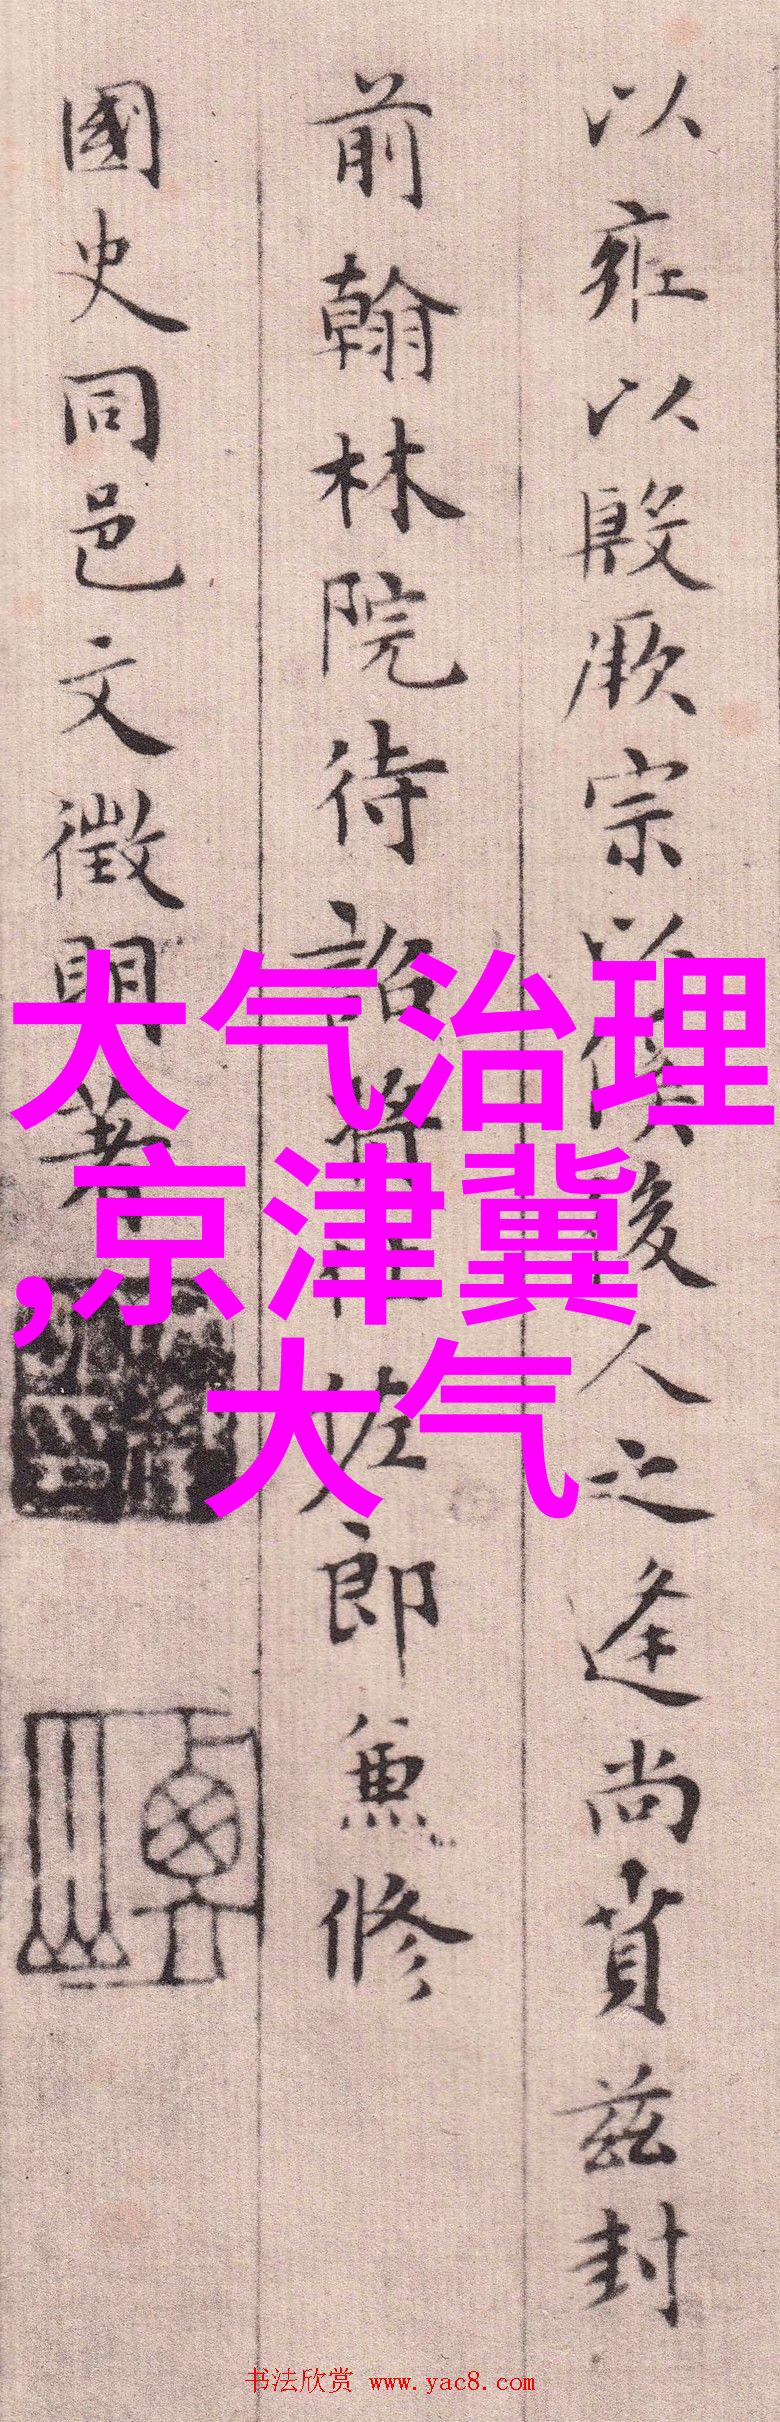 以雍以殷厥宗以 後人之逢尚賁兹封
前翰林院待詔將仕佐郎兼修
國史同邑文徵明著
大气治理
,京津冀
大气
书法欣赏 www.yac8.com